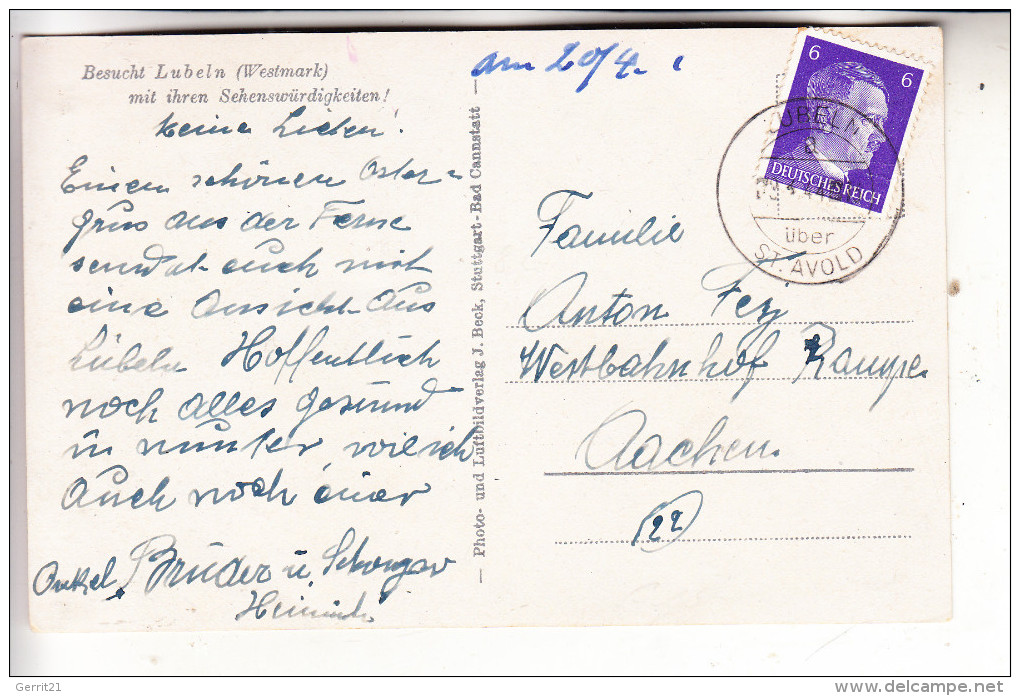 Besucht Lubeln (Westmark)
mit ihren Sehenswürdigkeiten!
Meine Lieben!
Einen schönen Oster-
grus aus der Ferne
sendet euch mit
eine Ansicht aus
Lübeln Hoffentlich
noch alles gesund
u munter wie ich
Auch noch
Onkel, Bruder u.
Heinrich
— Photo- und Luftbildverlag J. Beck, Stuttgart-Bad Cannstatt —
am 20/4.
6 6
DEUTSCHES REICH
LUBELN
a
über
ST. AVOLD
Familie
Anton
Westbahnhof Rampe
Aachen
(22)
Gerrit21
delcampe.net